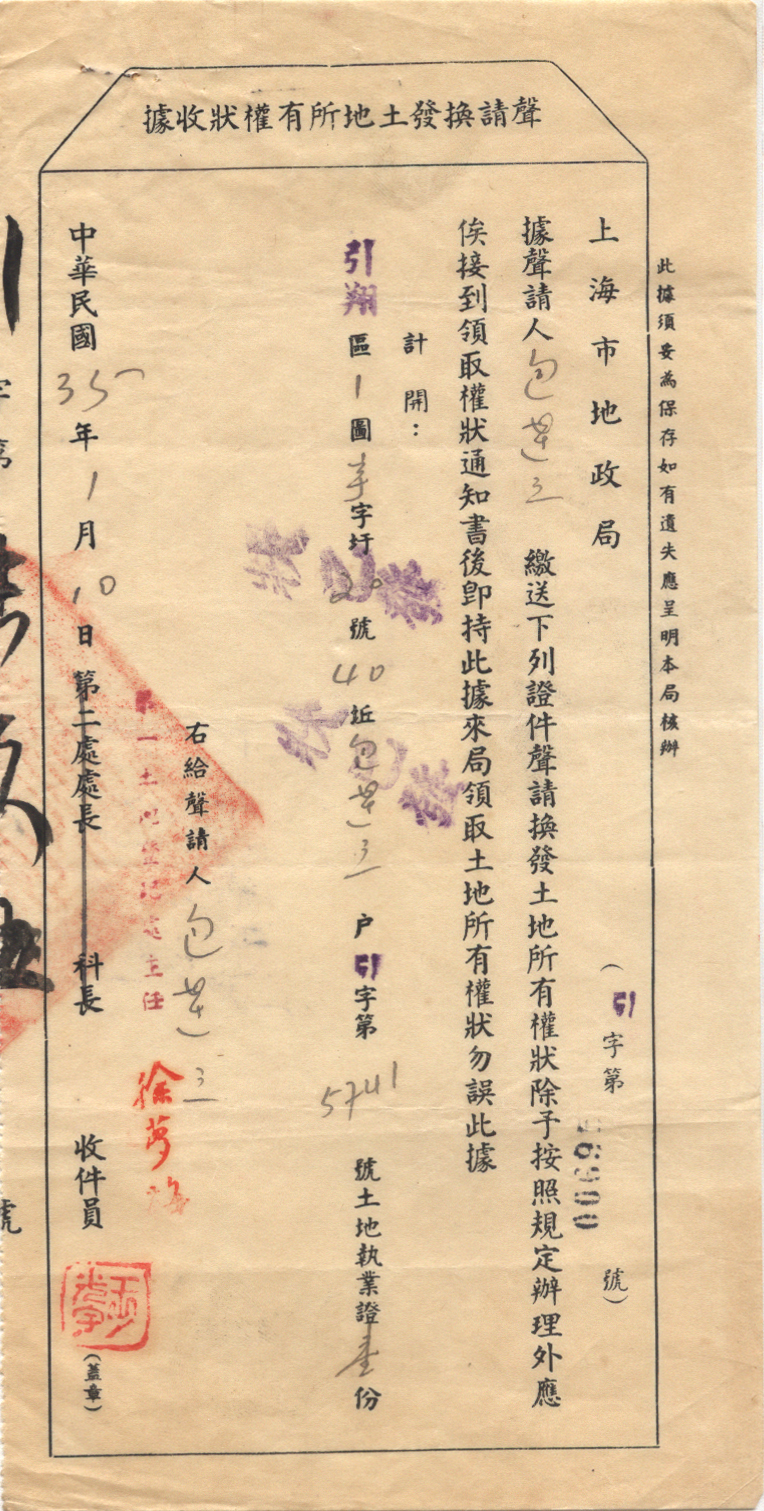 聲請換發土地所有權狀收據
此據須妥為保存如有遺失應呈明本局核辦
上海市地政局
（引字第 號）
據聲請人包達三 繳送下列證件聲請換發土地所有權狀除予按照規定辦理外應
俟接到領取權狀通知書後卽持此據來局領取土地所有權狀勿誤此據
計開：
引翔區1圖 字圩20號40近包達三戶引字第5741號土地執業證壹份
右給聲請人包達三
第一土地登記處主任 徐夢梅
中華民國35年1月10日 第二處處長 科長 收件員 （蓋章）
狀已發
狀已發